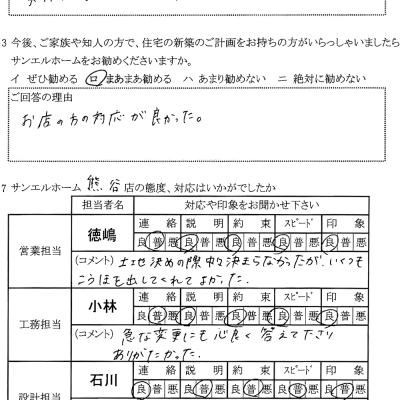 3 今後、ご家族や知人の方で、住宅の新築のご計画をお持ちの方がいらっしゃいましたら
サンエルホームをお勧めくださいますか。
イ ぜひ勧める ロ まあまあ勧める ハ あまり勧めない ニ 絶対に勧めない
ご回答の理由
お店の方の対応が良かった。
7 サンエルホーム 熊谷 店の態度、対応はいかがでしたか
担当者名 対応や印象をお聞かせ下さい
営業担当 徳嶋 連絡 説明 約束 スピード 印象
良普悪 良普悪 良普悪 良普悪 良普悪
(コメント) 土地決めの際中々決まらなかったが、いくつも
こうほを出してくれてよかった。
工務担当 小林 連絡 説明 約束 スピード 印象
良普悪 良普悪 良普悪 良普悪 良普悪
(コメント) 急な変更にも心良く答えて下さり
ありがたかった。
設計担当 石川 連絡 説明 約束 スピード 印象
良普悪 良普悪 良普悪 良普悪 良普悪